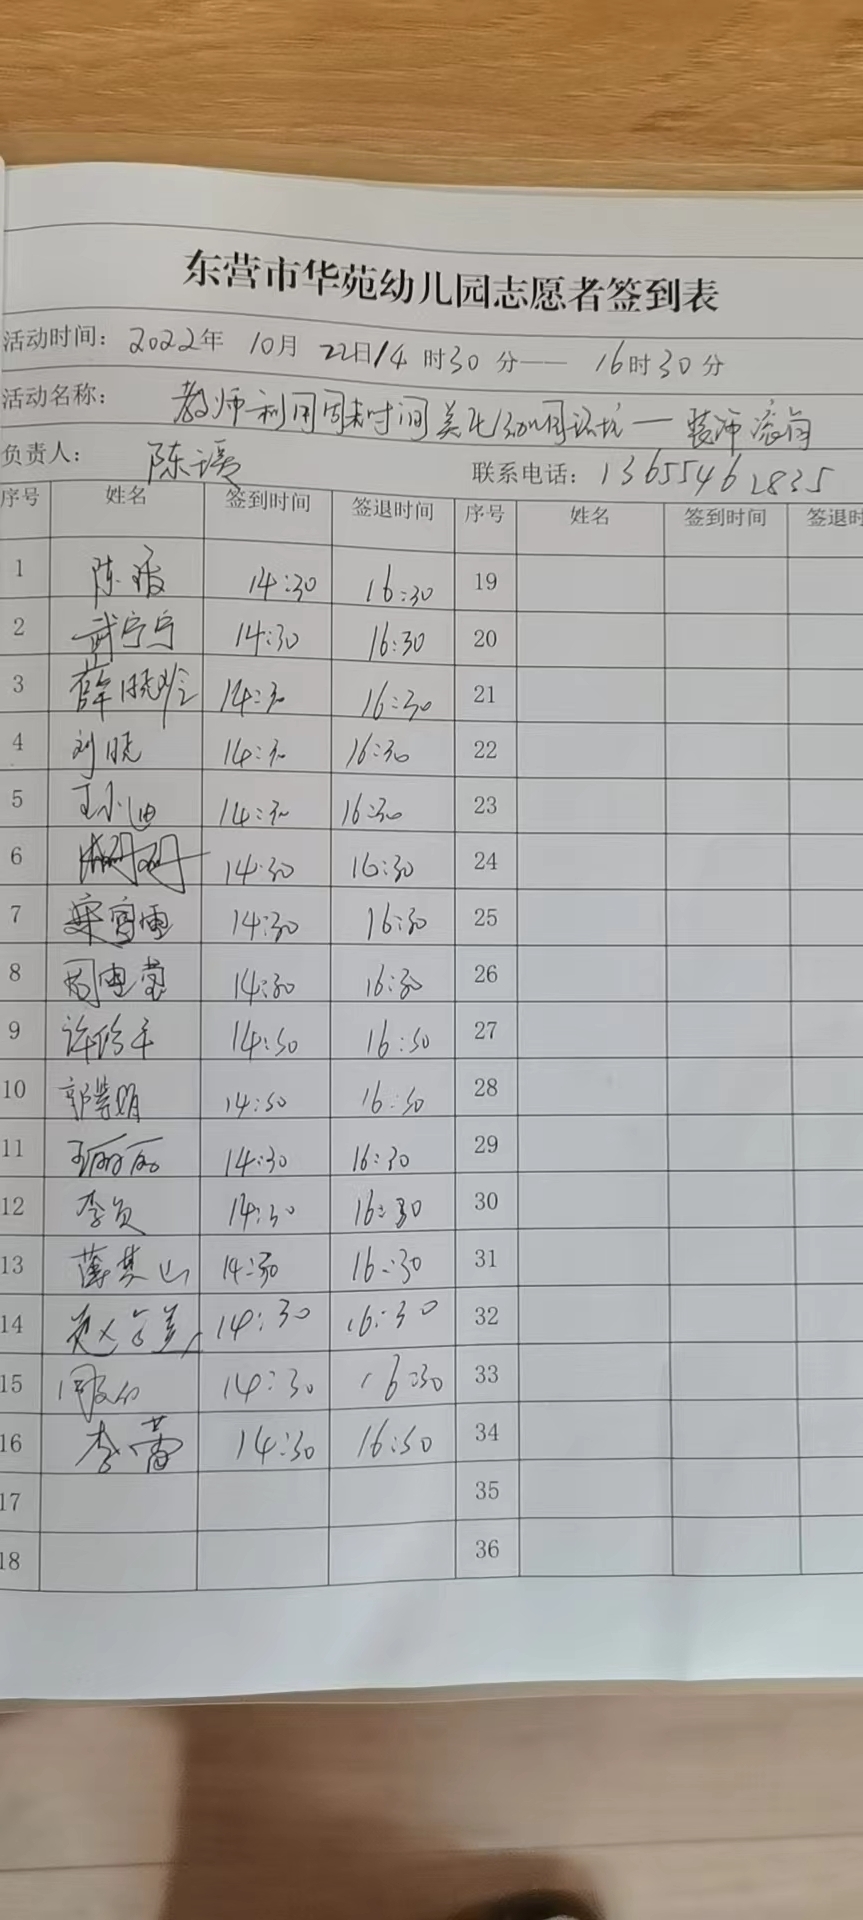 东营市华苑幼儿园志愿者签到表
活动时间：2022年 10月 22日14时30分—— 16时30分
活动名称： 教师利用周末时间美化幼儿园环境—装饰
负责人： 陈 联系电话：13655462835
序号 姓名 签到时间 签退时间 序号 姓名 签到时间 签退时
1 陈 14:30 16:30 19
2 武宁宁 14:30 16:30 20
3 薛晓 14:30 16:30 21
4 刘晓 14:30 16:30 22
5 王小迪 14:30 16:30 23
6 14:30 16:30 24
7 14:30 16:30 25
8 周 14:30 16:30 26
9 许 14:30 16:30 27
10 郭 娟 14:30 16:30 28
11 王丽丽 14:30 16:30 29
12 李 14:30 16:30 30
13 薄其山 14:30 16:30 31
14 赵 14:30 16:30 32
15 14:30 16:30 33
16 李蕾 14:30 16:30 34
17 35
18 36